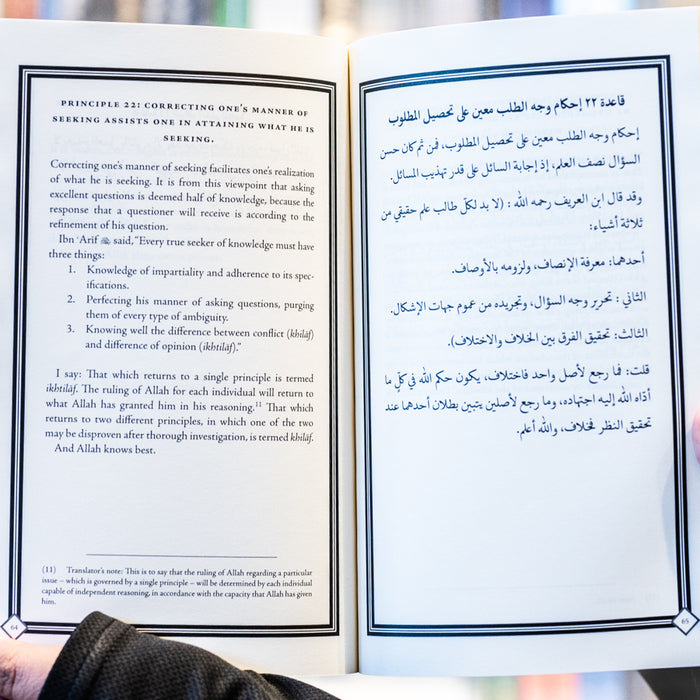 PRINCIPLE 22: CORRECTING ONE'S MANNER OF
SEEKING ASSISTS ONE IN ATTAINING WHAT HE IS
SEEKING.
Correcting one's manner of seeking facilitates one's realization
of what he is seeking. It is from this viewpoint that asking
excellent questions is deemed half of knowledge, because the
response that a questioner will receive is according to the
refinement of his question.
Ibn ʿArīf said, "Every true seeker of knowledge must have
three things:
1. Knowledge of impartiality and adherence to its spec-
ifications.
2. Perfecting his manner of asking questions, purging
them of every type of ambiguity.
3. Knowing well the difference between conflict (khilāf)
and difference of opinion (ikhtilāf)."
I say: That which returns to a single principle is termed
ikhtilāf. The ruling of Allah for each individual will return to
what Allah has granted him in his reasoning.11 That which
returns to two different principles, in which one of the two
may be disproven after thorough investigation, is termed khilāf.
And Allah knows best.
(11) Translator's note: This is to say that the ruling of Allah regarding a particular
issue – which is governed by a single principle – will be determined by each individual
capable of independent reasoning, in accordance with the capacity that Allah has given
him.
64
قاعدة ٢٢ إحكام وجه الطلب معين على تحصيل المطلوب
إحكام وجه الطلب معين على تحصيل المطلوب، فمن ثم كان حسن
السؤال نصف العلم، إذ إجابة السائل على قدر تهذيب المسائل.
وقد قال ابن العريف رحمه الله : (لا بد لكلّ طالب علم حقيقي من
ثلاثة أشياء:
أحدهما: معرفة الإنصاف، ولزومه بالأوصاف.
الثاني : تحرير وجه السؤال، وتجريده من عموم جهات الإشكال.
الثالث: تحقيق الفرق بين الخلاف والاختلاف).
قلت: فما رجع لأصل واحد فاختلاف، يكون حكم الله في كلّ ما
أدّاه الله إليه اجتهاده، وما رجع لأصلين يتبين بطلان أحدهما عند
تحقيق النظر فخلاف، والله أعلم.
65